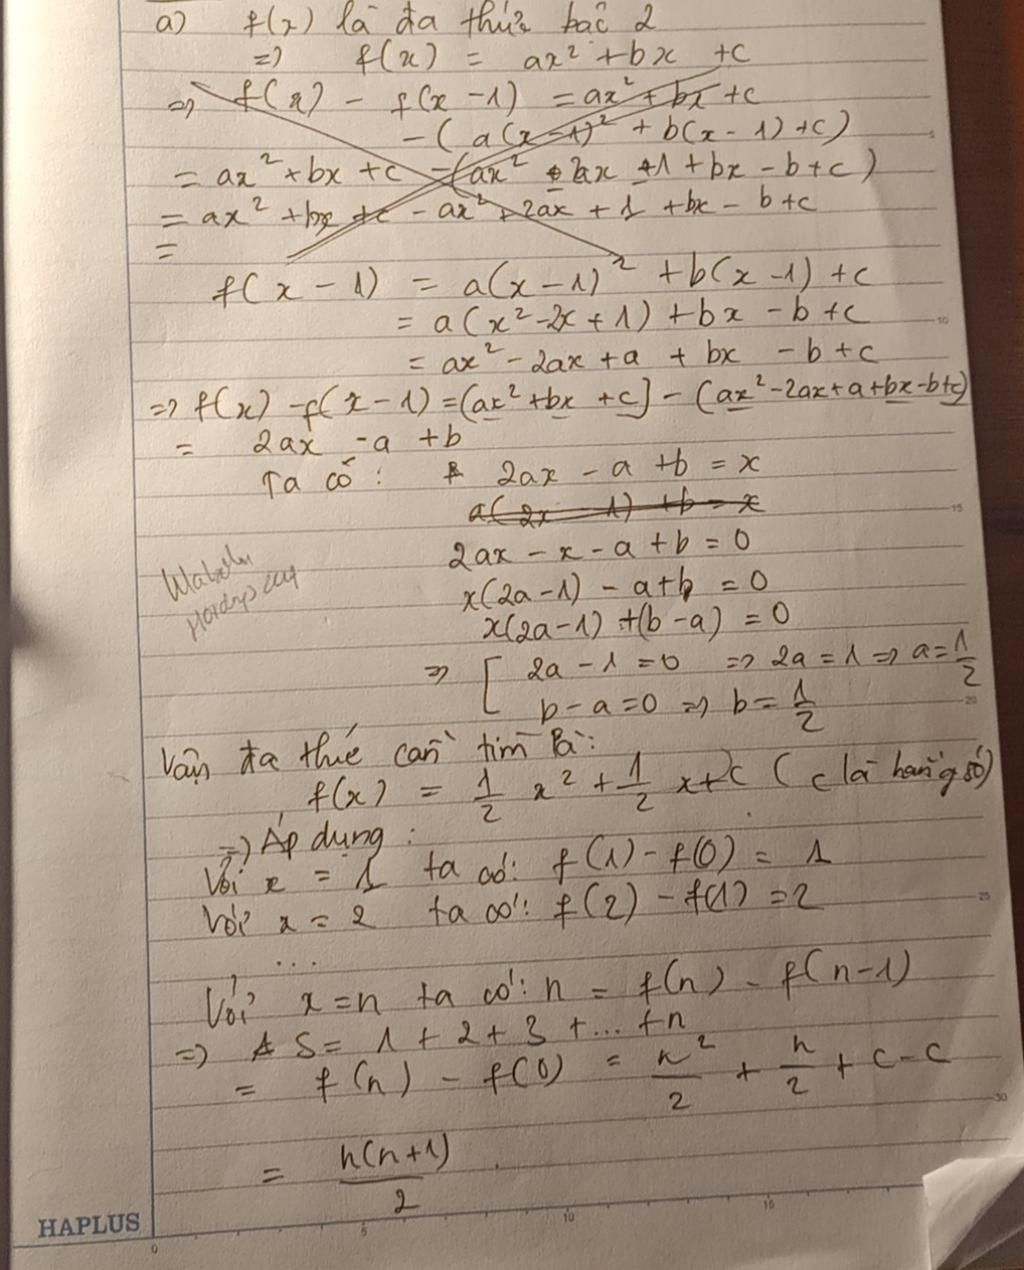 a) f(x) là đa thức bậc 2
=> f(x) = ax² + bx + c
=> f(x) - f(x-1) = ax² + bx + c
- (a(x-1)² + b(x-1) + c)
= ax² + bx + c - (ax² - 2ax + 1 + bx - b + c)
= ax² + bx + c - ax² + 2ax + 1 + bx - b + c
=
f(x-1) = a(x-1)² + b(x-1) + c
= a(x² - 2x + 1) + bx - b + c
= ax² - 2ax + a + bx - b + c
=> f(x) - f(x-1) = (ax² + bx + c) - (ax² - 2ax + a + bx - b + c)
= 2ax - a + b
Ta có: 2ax - a + b = x
a(2x - 1) + b = x
2ax - x - a + b = 0
x(2a-1) - a + b = 0
x(2a-1) + (b-a) = 0
=> [ 2a - 1 = 0 => 2a = 1 => a = 1/2
b - a = 0 => b = 1/2
Vậy đa thức cần tìm là:
f(x) = 1/2 x² + 1/2 x + c (c là hằng số)
=> Áp dụng:
Với x = 1 ta có: f(1) - f(0) = 1
Với x = 2 ta có: f(2) - f(1) = 2
...
Với x = n ta có: n = f(n) - f(n-1)
=> S = 1 + 2 + 3 + ... + n
= f(n) - f(0) = n²/2 + n/2 + c - c
= n(n+1)/2
HAPLUS
5
10
15
20
25
30
0 5 10 15